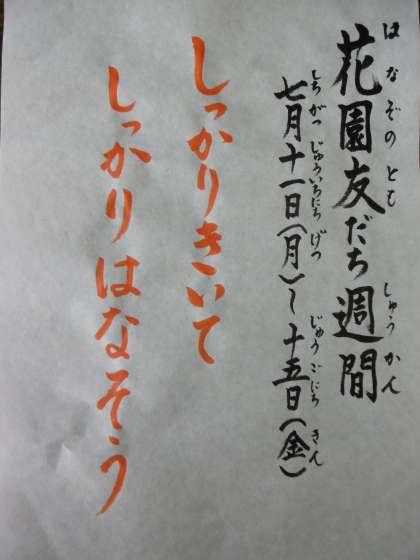 花園友だち週間
はなぞのとも しゅうかん
七月十一日(月)~十五日(金)
しちがつ じゅういちにち げつ じゅうごにち きん
しっかりきいて
しっかりはなそう